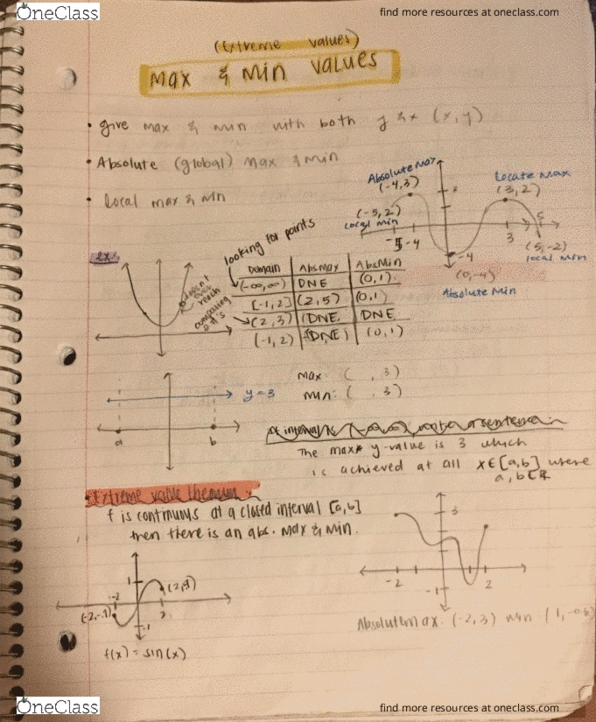 OneClass
find more resources at oneclass.com
(Extreme values)
Max & Min Values
• Give max & min with both y & x (x,y)
• Absolute (global) Max & Min
• Local max & Min
Absolute Max
(-4,3)
Locate Max
(3,2)
(-5,2)
Local Min
-5 -4
3
5
-4
(5,-2)
local Min
(0,-4)
Absolute Min
Ex:
looking for points
Domain AbsMax AbsMin
(-∞,∞) DNE (0,1)
[-1,2] (2,5) (0,1)
(2,3) (DNE, DNE
(-1,2) (DNE) (0,1)
y=3
a b
Max: ( , 3)
Min: ( , 3)
The max y-value is 3 which
is achieved at all x∈[a,b] where
a,b∈R
• Extreme value theorum
f is continuus at a closed interval [a,b]
then there is an abs. Max & Min.
1
-2
2
-1
f(x) = sin(x)
3
-2
2
-1
Absolutemax: (-2,3) min
OneClass
find more resources at oneclass.com